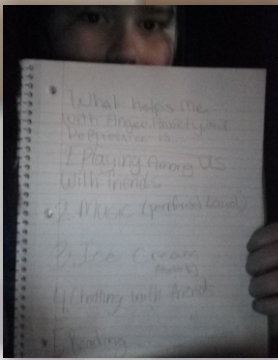 What helps me
with Anger, Anxiety, and
Depression is
1 Playing Among US
with friends
2 Music (prefered Loud)
3 Ice Cream
4 Chatting with friends
5 Reading